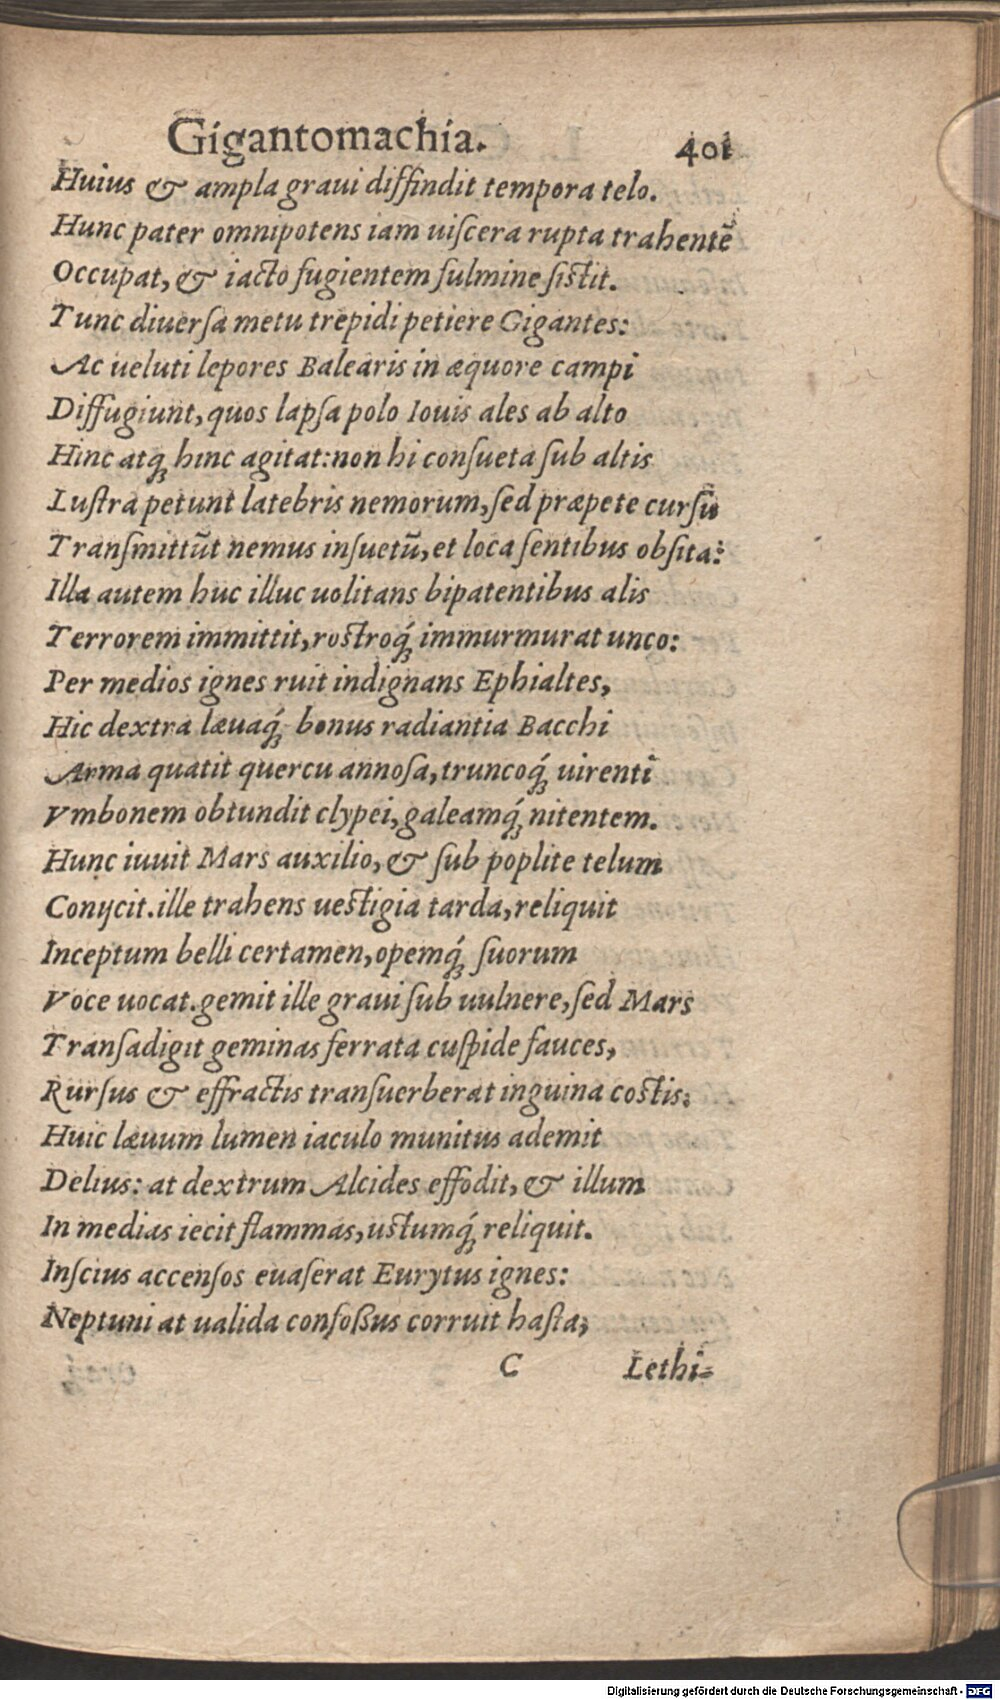 Gigantomachia. 401
Huius & ampla graui diffindit tempora telo.
Hunc pater omnipotens iam uiſcera rupta trahentē
Occupat, & iacto fugientem fulmine ſistit.
Tunc diuerſa metu trepidi petiere Gigantes:
Ac ueluti lepores Balearis in æquore campi
Diffugiunt, quos lapſa polo Iouis ales ab alto
Hinc atq; hinc agitat: non hi conſueta ſub altis
Luſtra petunt latebris nemorum, ſed præpete curſu
Tranſmittūt nemus inſuetū, et loca ſentibus obſita:
Illa autem huc illuc uolitans bipatentibus alis
Terrorem immittit, rostroq́; immurmurat unco:
Per medios ignes ruit indignans Ephialtes,
Hic dextra læuaq́; bonus radiantia Bacchi
Arma quatit quercu annoſa, truncoq́; uirenti
Vmbonem obtundit clypei, galeamq́; nitentem.
Hunc iuuit Mars auxilio, & ſub poplite telum
Conijcit. ille trahens uestigia tarda, reliquit
Inceptum belli certamen, opemq́; ſuorum
Voce uocat. gemit ille graui ſub uulnere, ſed Mars
Tranſadigit geminas ferrata cuſpide fauces,
Rurſus & effractis tranſuerberat inguina costis:
Huic læuum lumen iaculo munitus ademit
Delius: at dextrum Alcides effodit, & illum
In medias iecit flammas, ustumq́; reliquit.
Inſcius accenſos euaſerat Eurytus ignes:
Neptuni at ualida confoßus corruit haſta,
C Lethi-
Digitalisierung gefördert durch die Deutsche Forschungsgemeinschaft - DFG